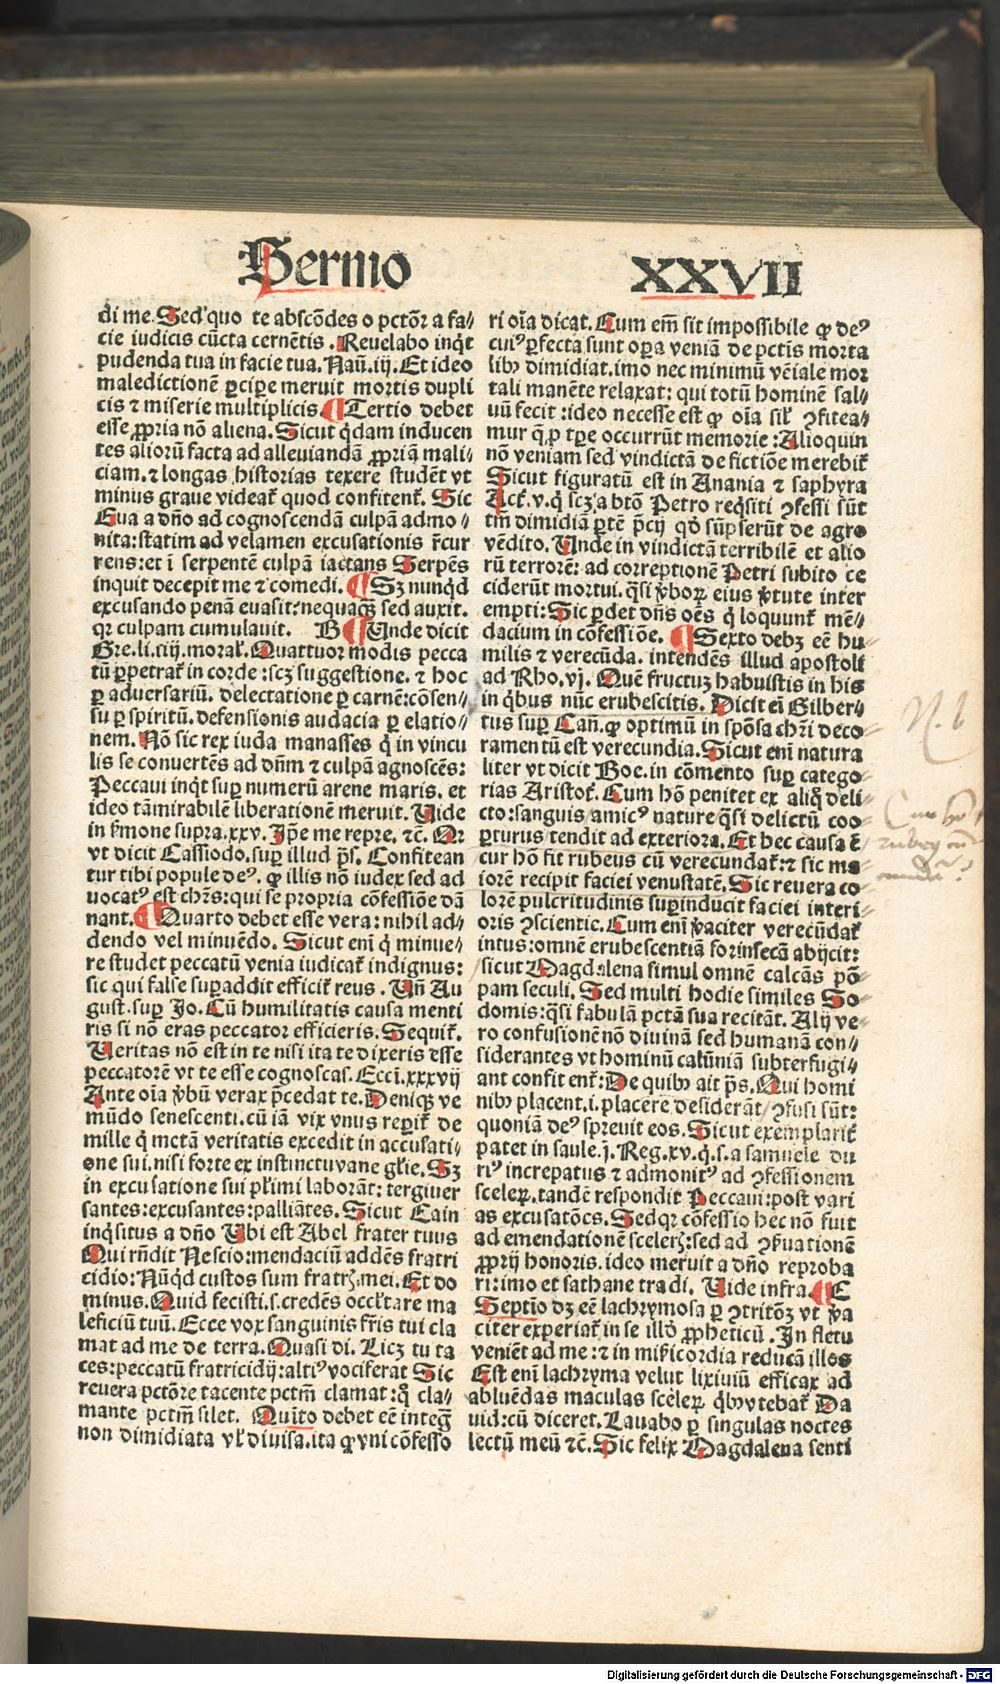 Sermo XXVII
di me. Sed quo te abscōdes o pctōr a fa⸗
cie iudicis cūcta cernētis. Reuelabo inqͥt
pudenda tua in facie tua. Naū. iij. Et ideo
maledictionē ꝑcipe meruit mortis dupli
cis ⁊ miserie multiplicis. ¶ Tertio debet
esse ꝓpria nō aliena. Sicut qͥdam inducen
tes aliorū facta ad alleuiandā ꝓpriā mali⸗
ciam. ⁊ longas historias texere studēt vt
minus graue videat᷑ quod confitent᷑. Sic
Eua a dño ad cognoscendā culpā admo⸗
nita: statim ad velamen excusationis r̄cur
rens: et ī serpentē culpā iactans Serpēs
inquit decepit me ⁊ comedi. ¶ Sꝫ nunqͥd
excusando penā euasit: nequaqͣꝫ sed auxit.
qꝛ culpam cumulauit. B ¶ Unde dicit
Gre. li. iiij. moral᷑. Quattuor modis pecca
tū ꝑpetrat᷑ in corde: scꝫ suggestione. ⁊ hoc
ꝑ aduersariū. delectatione ꝑ carnē: cōsen⸗
su ꝑ spiritū. defensionis audacia ꝑ elatio⸗
nem. Nō sic rex iuda manasses qͥ in vincu
lis se conuertēs ad dn̄m ⁊ culpā agnoscēs:
Peccaui inqͥt suꝑ numerū arene maris. et
ideo tā mirabilē liberationē meruit. Uide
in ẜmone supra. xxv. Jp̄e me repre. ⁊c. Qꝛ
vt dicit Cassiodo. suꝑ illud p̄s. Confitean
tur tibi popule deꝰ. ꝙ illis nō iudex sed ad
uocatꝰ est chr̄s: qui se propria cōfessiōe dā
nant. ¶ Quarto debet esse vera: nihil ad⸗
dendo vel minuēdo. Sicut enī qͥ minue⸗
re studet peccatū venia iudicat᷑ indignus:
sic qui false suꝑaddit efficit᷑ reus. Un̄ Au
gust. suꝑ Jo. Cū humilitatis causa menti
ris si nō eras peccator efficieris. Sequit᷑.
Ueritas nō est in te nisi ita te dixeris esse
peccatorē vt te esse cognoscas. Eccī. xxxvij
Ante oīa ꝟbū verax p̄cedat te. Deniqꝫ ve
mūdo senescenti. cū iā vix vnus reꝑit᷑ de
mille qͥ metā veritatis excedit in accusati⸗
one sui. nisi forte ex instinctu vane gl̄ie. Sꝫ
in excusatione sui pl̄imi laborāt: tergiuer
santes: excusantes: palliātes. Sicut Cain
inqͥsitus a dño Ubi est Abel frater tuus
Qui rn̄dit Nescio: mendaciū addēs fratri
cidio: Nūqͥd custos sum fratrꝭ mei. Et do
minus. Quid fecisti. s. credēs occl̄tare ma
leficiū tuū. Ecce vox sanguinis fr̄is tui cla
mat ad me de terra. Quasi di. Licꝫ tu ta
ces: peccatū fratricidij: altiꝰ vociferat Sic
reuera pctōre tacente pctm̄ clamat: qͦ cla⸗
mante pctm̄ silet. Quīto debet eē integͣ
non dimidiata vl᷑ diuisa. ita ꝙ vni cōfesso
ri oīa dicat. Cum em̄ sit impossibile ꝙ deꝰ
cuiꝰ ꝑfecta sunt oꝑa veniā de pctīs morta
libꝰ dimidiat. imo nec minimū vēiale mor
tali manēte relaxat: qui totū hominē sal⸗
uū fecit: ideo necesse est ꝙ oīa sil᷑ ꝯfitea⸗
mur q̄ ꝓ tꝑe occurrūt memorie: Alioquin
nō veniam sed vindictā de fictiōe merebit᷑
Sicut figuratū est in Anania ⁊ saphyra
Act᷑. v. qͥ scꝫ a btō Petro reqͥsiti ꝯfessi sūt
tm̄ dimidiā ꝑtē p̄cij qd̄ sūpserūt de agro
vēdito. Unde in vindictā terribilē et alio
rū terrorē: ad correptionē Petri subito ce
ciderūt mortui. qͣsi ꝟboꝝ eius ꝟtute inter
empti: Sic ꝑdet dn̄s oēs qͥ loquunt᷑ mē⸗
dacium in cōfessiōe. ¶ Sexto debꝫ eē hu⸗
milis ⁊ verecūda. intendēs illud apostoli
ad Rho. vj. Quē fructuꝫ habuistis in his
in qͥbus nūc erubescitis. Dicit eī Gilber⸗
tus suꝑ Can. ꝙ optimū in spōsa chr̄i deco⸗
ramentū est verecundia. Sicut enī natura
liter vt dicit Boe. in cōmento suꝑ catego⸗
rias Aristot᷑. Cum hō penitet ex aliqͦ deli⸗
cto: sanguis amicꝰ nature qͣsi delictū coo⸗
ꝑturus tendit ad exteriora. Et hec causa ē
cur hō fit rubeus cū verecundat᷑: ⁊ sic ma
iorē recipit faciei venustatē. Sic reuera co
lorē pulcritudinis suꝑinducit faciei interi⸗
oris ꝯscientie. Cum enī ꝟaciter verecūdat᷑
intus: omnē erubescentiā forinsecā abijcit:
sicut Magdalena simul omnē calcās pō⸗
pam seculi. Sed multi hodie similes So⸗
domis: qͣsi fabulā pctā sua recitāt. Alij ve⸗
ro confusionē nō diuinā sed humanā con⸗
siderantes vt hominū calūniā subterfugi⸗
ant confitent᷑: De quibꝰ ait p̄s. Qui homi
nibꝰ placent. i. placere desiderāt ꝯfusi sūt:
quoniā deꝰ spreuit eos. Sicut exemplarit᷑
patet in saule. j. Reg. xv. q. s. a samuele du
riꝰ increpatus ⁊ admonitꝰ ad ꝯfessionem
sceleꝝ. tandē respondit Peccaui: post vari
as excusatōes. Sed qꝛ cōfessio hec nō fuit
ad emendationē scelerꝭ: sed ad ꝯẜuationē
ꝓprij honoris. ideo meruit a dño reproba
ri: imo et sathane tradi. Uide infra. ¶ E
Septīo dꝫ eē lachrymosa ꝑ ꝯtritōꝫ vt ꝟa
citer experiat᷑ in se illd̄ ꝓpheticū. Jn fletu
veniēt ad me: ⁊ in mīs̄icordia reducā illos
Est enī lachryma velut lixiuiū efficax ad
abluēdas maculas sceleꝝ qͥbꝰ vtebat᷑ Da
uid: cū diceret. Lauabo ꝑ singulas noctes
lectū meū ⁊c. Sic felix Magdalena senti
N. b
Digitalisierung gefördert durch die Deutsche Forschungsgemeinschaft - DFG